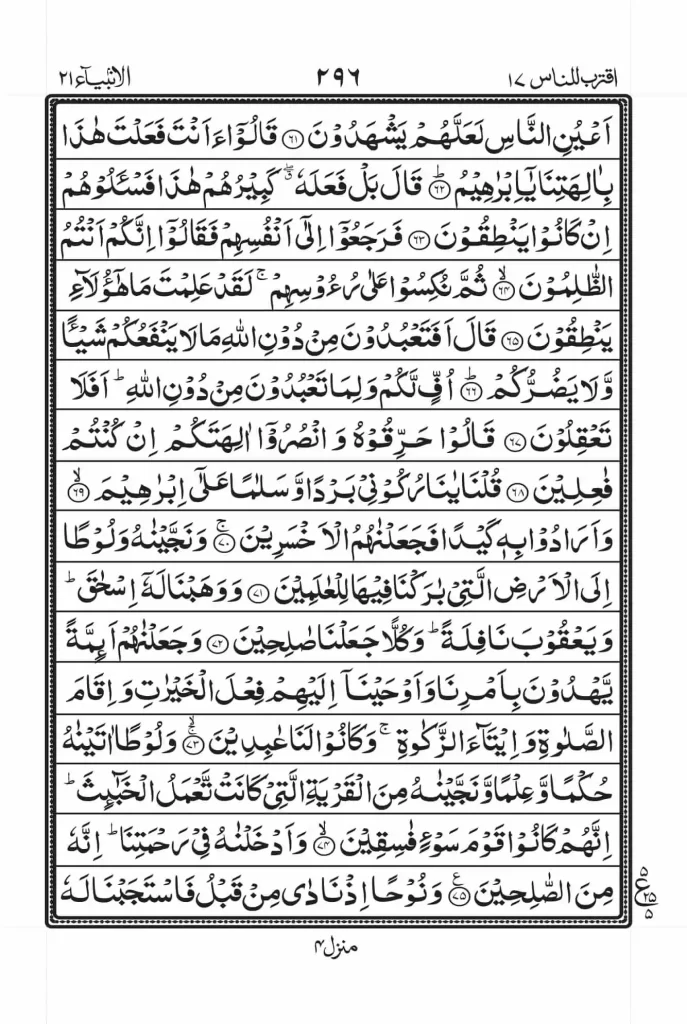 اقترب للناس ١٧ ٢٩٦ الانبیآء ٢١
اَعۡیُنِ النَّاسِ لَعَلَّهُمۡ یَشۡهَدُوۡنَ ﴿۶۱﴾ قَالُوۡۤا ءَاَنۡتَ فَعَلۡتَ هٰذَا
بِاٰلِهَتِنَا یٰۤاِبۡرٰهِیۡمُ ﴿۶۲﴾ؕ قَالَ بَلۡ فَعَلَهٗ ۖۗ كَبِیۡرُهُمۡ هٰذَا فَسۡـَٔلُوۡهُمۡ
اِنۡ كَانُوۡا یَنۡطِقُوۡنَ ﴿۶۳﴾ فَرَجَعُوۡۤا اِلٰۤی اَنۡفُسِهِمۡ فَقَالُوۡۤا اِنَّكُمۡ اَنۡتُمُ
الظّٰلِمُوۡنَ ﴿۶۴﴾ۙ ثُمَّ نُكِسُوۡا عَلٰی رُءُوۡسِهِمۡ ۚ لَقَدۡ عَلِمۡتَ مَا هٰۤؤُلَآءِ
یَنۡطِقُوۡنَ ﴿۶۵﴾ قَالَ اَفَتَعۡبُدُوۡنَ مِنۡ دُوۡنِ اللّٰهِ مَا لَا یَنۡفَعُكُمۡ شَیۡـًٔا
وَّ لَا یَضُرُّكُمۡ ﴿۶۶﴾ؕ اُفٍّ لَّكُمۡ وَ لِمَا تَعۡبُدُوۡنَ مِنۡ دُوۡنِ اللّٰهِ ؕ اَفَلَا
تَعۡقِلُوۡنَ ﴿۶۷﴾ قَالُوۡا حَرِّقُوۡهُ وَ انۡصُرُوۡۤا اٰلِهَتَكُمۡ اِنۡ كُنۡتُمۡ
فٰعِلِیۡنَ ﴿۶۸﴾ قُلۡنَا یٰنَارُ كُوۡنِیۡ بَرۡدًا وَّ سَلٰمًا عَلٰۤی اِبۡرٰهِیۡمَ ﴿۶۹﴾ۙ
وَ اَرَادُوۡا بِهٖ كَیۡدًا فَجَعَلۡنٰهُمُ الۡاَخۡسَرِیۡنَ ﴿۷۰﴾ۚ وَ نَجَّیۡنٰهُ وَ لُوۡطًا
اِلَی الۡاَرۡضِ الَّتِیۡ بٰرَكۡنَا فِیۡهَا لِلۡعٰلَمِیۡنَ ﴿۷۱﴾ وَ وَهَبۡنَا لَهٗۤ اِسۡحٰقَ ؕ
وَ یَعۡقُوۡبَ نَافِلَةً ؕ وَ كُلًّا جَعَلۡنَا صٰلِحِیۡنَ ﴿۷۲﴾ وَ جَعَلۡنٰهُمۡ اَئِمَّةً
یَّهۡدُوۡنَ بِاَمۡرِنَا وَ اَوۡحَیۡنَاۤ اِلَیۡهِمۡ فِعۡلَ الۡخَیۡرٰتِ وَ اِقَامَ
الصَّلٰوةِ وَ اِیۡتَآءَ الزَّكٰوةِ ۚ وَ كَانُوۡا لَنَا عٰبِدِیۡنَ ﴿۷۳﴾ۚۙ وَ لُوۡطًا اٰتَیۡنٰهُ
حُكۡمًا وَّ عِلۡمًا وَّ نَجَّیۡنٰهُ مِنَ الۡقَرۡیَةِ الَّتِیۡ كَانَتۡ تَّعۡمَلُ الۡخَبٰٓئِثَ ؕ
اِنَّهُمۡ كَانُوۡا قَوۡمَ سَوۡءٍ فٰسِقِیۡنَ ﴿۷۴﴾ۙ وَ اَدۡخَلۡنٰهُ فِیۡ رَحۡمَتِنَا ؕ اِنَّهٗ
مِنَ الصّٰلِحِیۡنَ ﴿۷۵﴾ع وَ نُوۡحًا اِذۡ نَادٰی مِنۡ قَبۡلُ فَاسۡتَجَبۡنَا لَهٗ
٥ ع ٢٥ ٥
منزل ٤